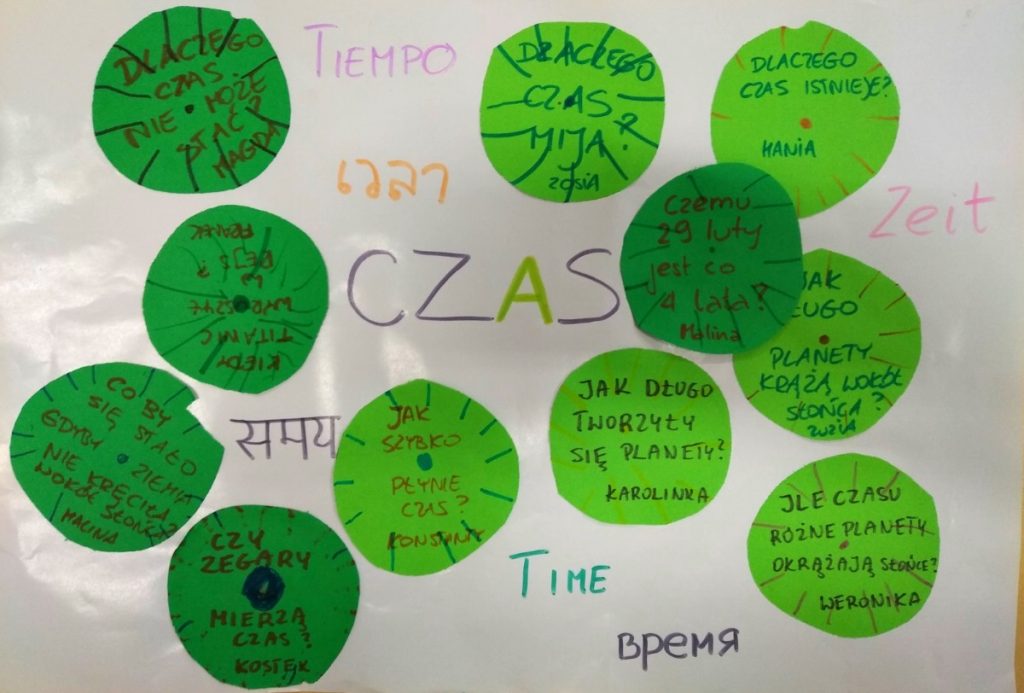 DLACZEGO
CZAS
NIE MOŻE
STAĆ?
MAGDA
TIEMPO
DLACZEGO
CZAS
MIJA?
ZOSIA
DLACZEGO
CZAS ISTNIEJE?
MANIA
เวลา
Zeit
CZAS
Czemu
29 luty
jest co
4 lata?
Malina
KIEDY
TITANIC
WYRUSZYŁ
W
REJS?
FRANEK
JAK
DŁUGO
PLANETY
KRĄŻĄ WOKÓŁ
SŁOŃCA?
ZUZIA
CO BY
SIĘ STAŁO
GDYBY ZIEMIA
NIE KRĘCIŁA
WOKÓŁ SŁOŃCA?
MALINA
समय
JAK
SZYBKO
PŁYNIE
CZAS?
KONSTANTY
JAK DŁUGO
TWORZYŁY
SIĘ PLANETY?
KAROLINKA
JLE CZASU
RÓŻNE PLANETY
OKRĄŻAJĄ SŁOŃCE?
WERONIKA
CZY
ZEGARY
MIERZĄ
CZAS?
KOSTEK
TIME
время